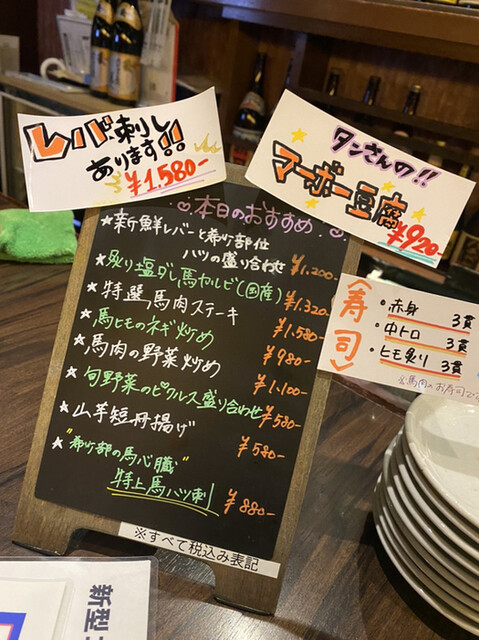 レバ刺し
あります!!
¥1.580-
タンさんの!!
マーボー豆腐
¥920-
本日のおすすめ
★新鮮レバーと希少部位
ハツの盛り合わせ ¥1.200-
★炙り塩ダレ馬カルビ(国産) ¥1.320-
★特選馬肉ステーキ ¥1.580-
★馬ヒモのネギ炒め ¥980-
★馬肉の野菜炒め ¥1.100-
★旬野菜のピクルス盛り合わせ ¥580-
★山芋短冊揚げ ¥580-
★"希少部の馬心臓"
特上馬ハツ刺 ¥880-
※すべて税込み表記
〈寿司〉
・赤身 3貫
・中トロ 3貫
・ヒモ炙り 3貫
※馬肉のお寿司
新型